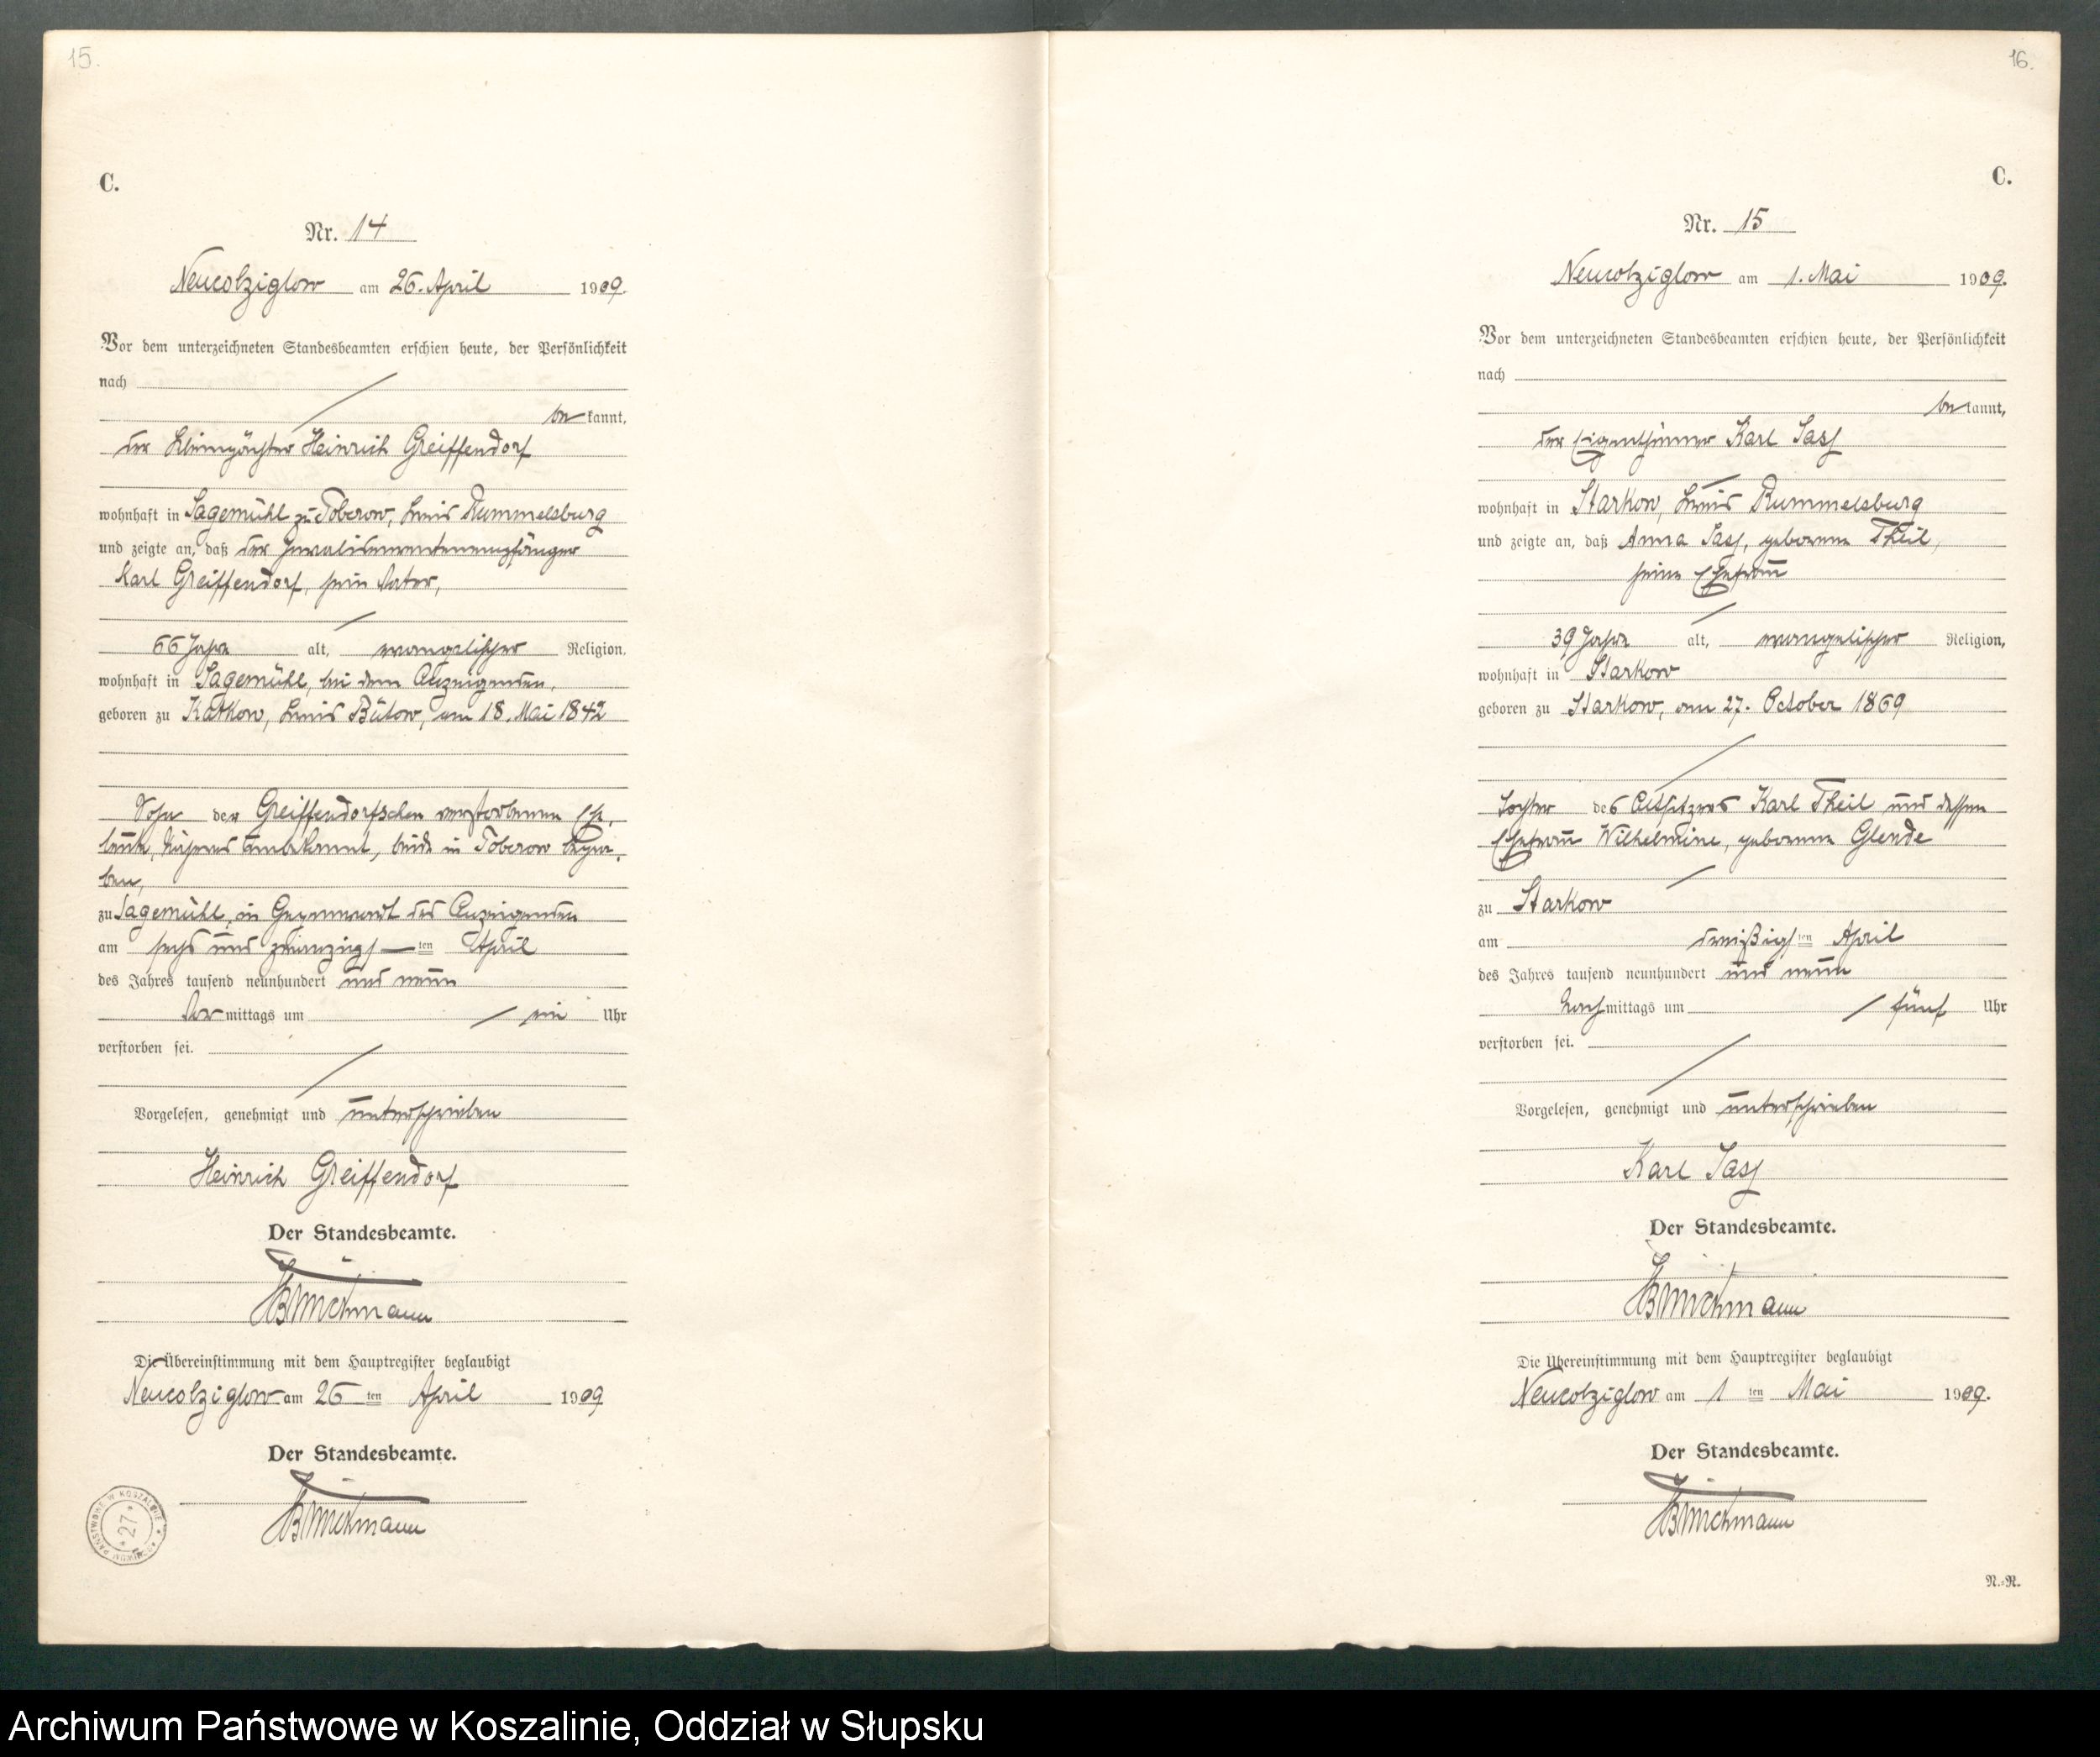 15.
C.
Nr. 14
Neucolziglow am 26. April 1909.
Vor dem unterzeichneten Standesbeamten erschien heute, der Persönlichkeit
nach
bekannt,
der Kleinpächter Heinrich Greiffendorf
wohnhaft in Sagemühl zu Toberow, Kreis Rummelsburg
und zeigte an, daß der Invalidenrentenempfänger
Karl Greiffendorf, sein Vater,
66 Jahre alt, evangelischer Religion,
wohnhaft in Sagemühl, bei dem Anzeigenden,
geboren zu Katkow, Kreis Bütow, am 18. Mai 1842
Sohn der Greiffendorfschen verstorbenen Ehe-
leute, Näheres unbekannt, beide in Toberow
zu Sagemühl, in Gegenwart des Anzeigenden
am sechs und zwanzigsten April
des Jahres tausend neunhundert und neun
Vormittags um ein Uhr
verstorben sei.
Vorgelesen, genehmigt und unterschrieben
Heinrich Greiffendorf
Der Standesbeamte.
Die Übereinstimmung mit dem Hauptregister beglaubigt
Neucolziglow am 26 ten April 1909
Der Standesbeamte.
ARCHIWUM PAŃSTWOWE W KOSZALINIE * 27 *
16.
C.
Nr. 15
Neucolziglow am 1. Mai 1909.
Vor dem unterzeichneten Standesbeamten erschien heute, der Persönlichkeit
nach
bekannt,
der Eigenthümer Karl Sass
wohnhaft in Starkow, Kreis Rummelsburg
und zeigte an, daß Anna Sass, geborene Theil,
seine Ehefrau
39 Jahre alt, evangelischer Religion,
wohnhaft in Starkow
geboren zu Starkow, am 27. October 1869
Tochter des Altsitzers Karl Theil und dessen
Ehefrau Wilhelmine, geborene Glende
zu Starkow
am dreißigsten April
des Jahres tausend neunhundert und neun
Nachmittags um fünf Uhr
verstorben sei.
Vorgelesen, genehmigt und unterschrieben
Karl Sass
Der Standesbeamte.
Die Übereinstimmung mit dem Hauptregister beglaubigt
Neucolziglow am 1 ten Mai 1909.
Der Standesbeamte.
N.-R.
Archiwum Państwowe w Koszalinie, Oddział w Słupsku